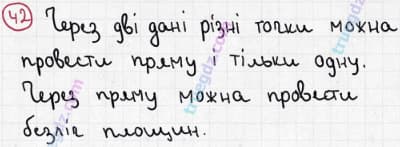 42 Через дві дані різні точки можна
провести пряму і тільки одну.
Через пряму можна провести
безліч площин.